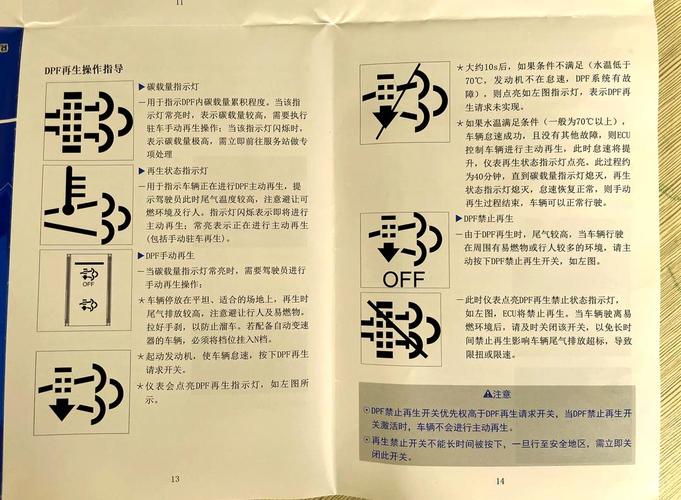 11
DPF再生操作指导
▶碳载量指示灯
—用于指示DPF内碳载量累积程度。当该指
示灯常亮时，表示碳载量较高，需要执行
驻车手动再生操作；当该指示灯闪烁时，
表示碳载量极高，需立即前往服务站做专
项处理
▶再生状态指示灯
—用于指示车辆正在进行DPF主动再生，提
示驾驶员此时尾气温度较高，注意避让可
燃环境及行人。指示灯闪烁表示即将进行
主动再生；常亮表示正在进行主动再生
(包括手动驻车再生)。
▶DPF手动再生
—当碳载量指示灯常亮时，需要驾驶员进行
手动再生操作：
★车辆停放在平坦、适合的场地上，再生时
尾气排放较高，注意避让行人及易燃物。
拉好手刹，以防止溜车。若配备自动变速
器的车辆，必须将档位挂入N档。
★起动发动机，使车辆怠速，按下DPF再生
请求开关。
★仪表会点亮DPF再生指示灯，如左图所
示。
13
★大约10s后，如果条件不满足（水温低于
70℃，发动机不在怠速，DPF系统有故
障），则点亮如左图指示灯，表示DPF再
生请求未实现。
★如果水温满足条件（一般为70℃以上），
车辆怠速成功，且没有其他故障，则ECU
控制车辆进行主动再生，此时怠速将提
升，仪表再生状态指示灯点亮。此过程约
为40分钟，直到碳载量指示灯熄灭，再生
状态指示灯熄灭，怠速恢复正常，则手动
再生过程结束，车辆可以正常行驶。
▶DPF禁止再生
—由于DPF再生时，尾气较高，当车辆行驶
在周围有易燃物或行人较多的环境，请主
动按下DPF禁止再生开关，如左图。
OFF
—此时仪表点亮DPF再生禁止状态指示灯，
如左图，ECU将禁止再生。当车辆驶离易
燃环境后，请及时关闭该开关，以免长时
间禁止再生影响车辆尾气排放超标，导致
限扭或限速。
注意
DPF禁止再生开关优先权高于DPF再生请求开关，当DPF禁止再生开
关激活时，车辆不会进行主动再生。
再生禁止开关不能长时间被按下，一旦行至安全地区，需立即关
闭此开关。
14